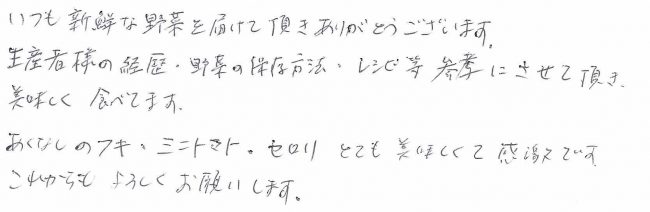 いつも新鮮な野菜を届けて頂きありがとうございます。
生産者様の経歴・野菜の保存方法・レシピ等参考にさせて頂き、
美味しく食べてます。
あくなしのフキ・ミニトマト・セロリとても美味しくて感激です
これからもよろしくお願いします。